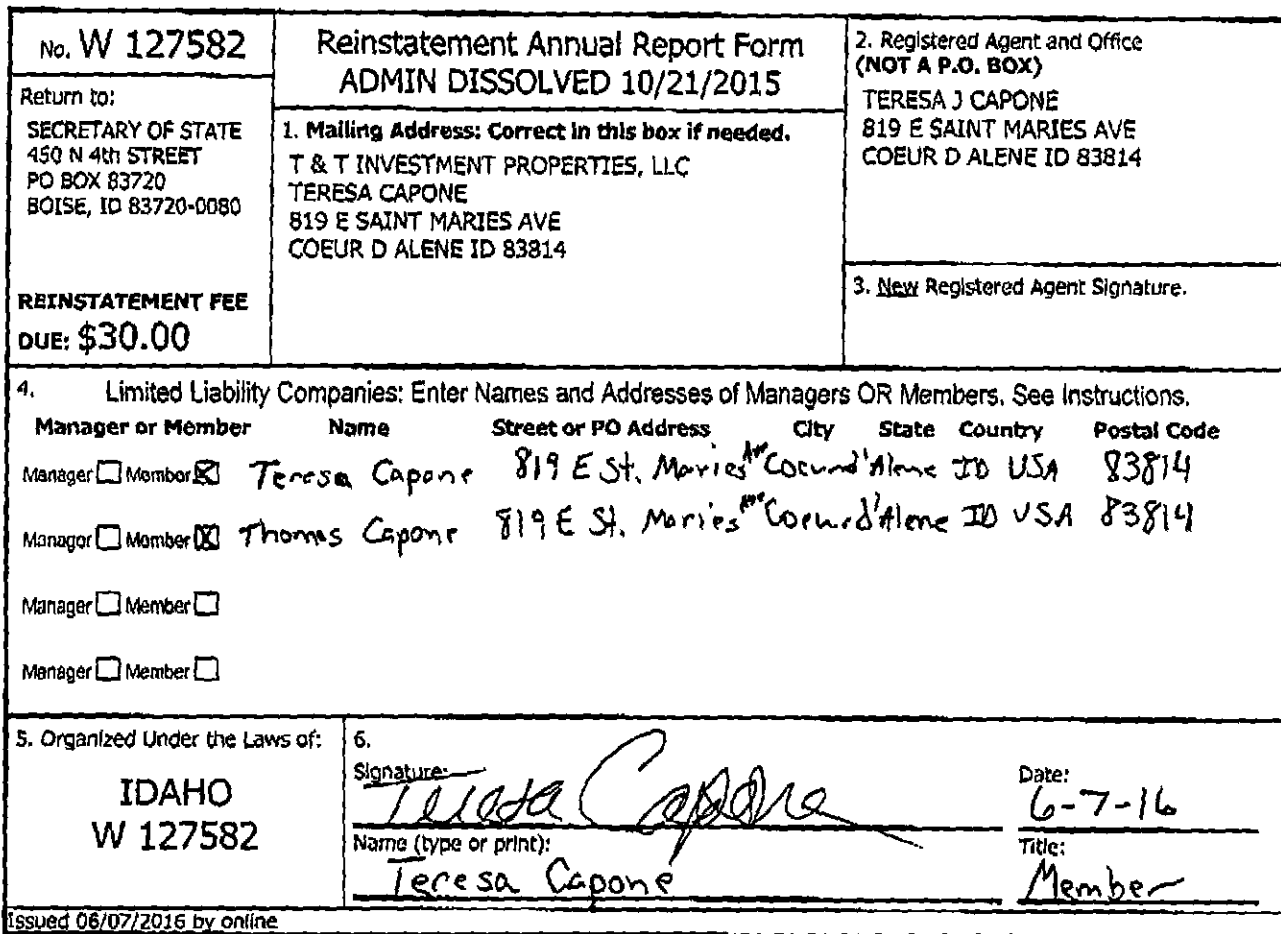 No. W 127582
Return to:
SECRETARY OF STATE
450 N 4th STREET
PO BOX 83720
BOISE, ID 83720-0080
REINSTATEMENT FEE
DUE: $30.00
Reinstatement Annual Report Form
ADMIN DISSOLVED 10/21/2015
1. Mailing Address: Correct in this box if needed.
T & T INVESTMENT PROPERTIES, LLC
TERESA CAPONE
819 E SAINT MARIES AVE
COEUR D ALENE ID 83814
2. Registered Agent and Office
(NOT A P.O. BOX)
TERESA J CAPONE
819 E SAINT MARIES AVE
COEUR D ALENE ID 83814
3. New Registered Agent Signature.
4. Limited Liability Companies: Enter Names and Addresses of Managers OR Members. See Instructions.
Manager or Member Name Street or PO Address City State Country Postal Code
Manager Member Teresa Capone 819 E St. Maries Ave Coeur d'Alene ID USA 83814
Manager Member Thomas Capone 819 E St. Maries Ave Coeur d'Alene ID USA 83814
Manager Member
Manager Member
5. Organized Under the Laws of:
IDAHO
W 127582
6.
Signature: Teresa Capone
Date: 6-7-16
Name (type or print): Teresa Capone
Title: Member
Issued 06/07/2016 by online